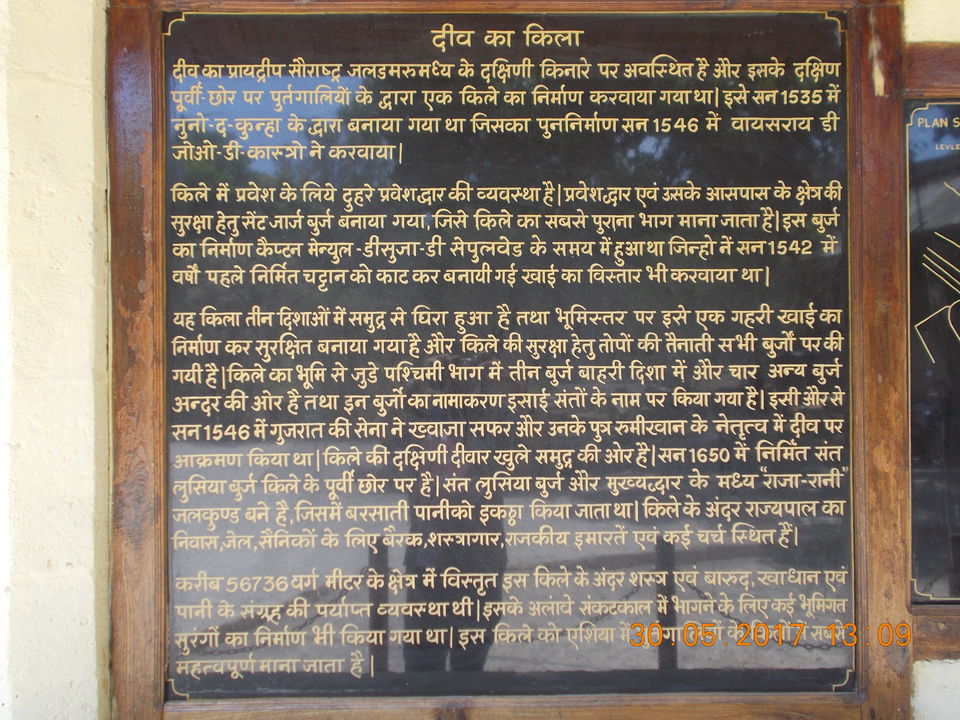 दीव का किला
दीव का प्रायद्वीप सौराष्ट्र जलडमरुमध्य के दक्षिणी किनारे पर अवस्थित है और इसके दक्षिण
पूर्वी-छोर पर पुर्तगालियों के द्वारा एक किले का निर्माण करवाया गया था| इसे सन 1535 में
नुनो-द-कुन्हा के द्वारा बनाया गया था जिसका पुननिर्माण सन 1546 में वायसराय डी
जोओ-डी-कास्त्रो ने करवाया|
किले में प्रवेश के लिये दुहरे प्रवेशद्वार की व्यवस्था है| प्रवेशद्वार एवं उसके आसपास के क्षेत्र की
सुरक्षा हेतु सेंट जार्ज बुर्ज बनाया गया, जिसे किले का सबसे पुराना भाग माना जाता है| इस बुर्ज
का निर्माण कैप्टन मेन्युल-डीसुजा-डी सेपुलवेड के समय में हुआ था जिन्हो नें सन 1542 में
वर्षों पहले निर्मित चट्टान को काट कर बनायी गई खाई का विस्तार भी करवाया था|
यह किला तीन दिशाओं में समुद्र से घिरा हुआ है तथा भूमिस्तर पर इसे एक गहरी खाई का
निर्माण कर सुरक्षित बनाया गया है और किले की सुरक्षा हेतु तोपों की तैनाती सभी बुर्जों पर की
गयी है| किले का भूमि से जुडे पश्चिमी भाग में तीन बुर्ज बाहरी दिशा में और चार अन्य बुर्ज
अन्दर की ओर है तथा इन बुर्जो का नामाकरण इसाई संतों के नाम पर किया गया है| इसी और से
सन 1546 में गुजरात की सेना ने ख्वाजा सफर और उनके पुत्र रुमीखान के नेतृत्व में दीव पर
आक्रमण किया था| किले की दक्षिणी दीवार खुले समुद्र की ओर है| सन 1650 में निर्मित संत
लुसिया बुर्ज किले के पूर्वी छोर पर है| संत लुसिया बुर्ज और मुख्यद्धार के मध्य "राजा-रानी"
जलकुण्ड बने है, जिसमें बरसाती पानीको इकठ्ठा किया जाता था| किले के अंदर राज्यपाल का
निवास, जेल, सैनिकों के लिए बैरक, शस्त्रागार, राजकीय इमारतें एवं कई चर्च स्थित हैं|
करीब 56736 वर्ग मीटर के क्षेत्र में विस्तृत इस किले के अंदर शस्त्र एवं बारुद, खाधान एवं
पानी के संग्रह की पर्याप्त व्यवस्था थी| इसके अलावे संकटकाल में भागने के लिए कई भूमिगत
सुरंगों का निर्माण भी किया गया था| इस किले को एशिया में
महत्वपूर्ण माना जाता है|
PLAN S
LEVLE
30.05.2017 13:09